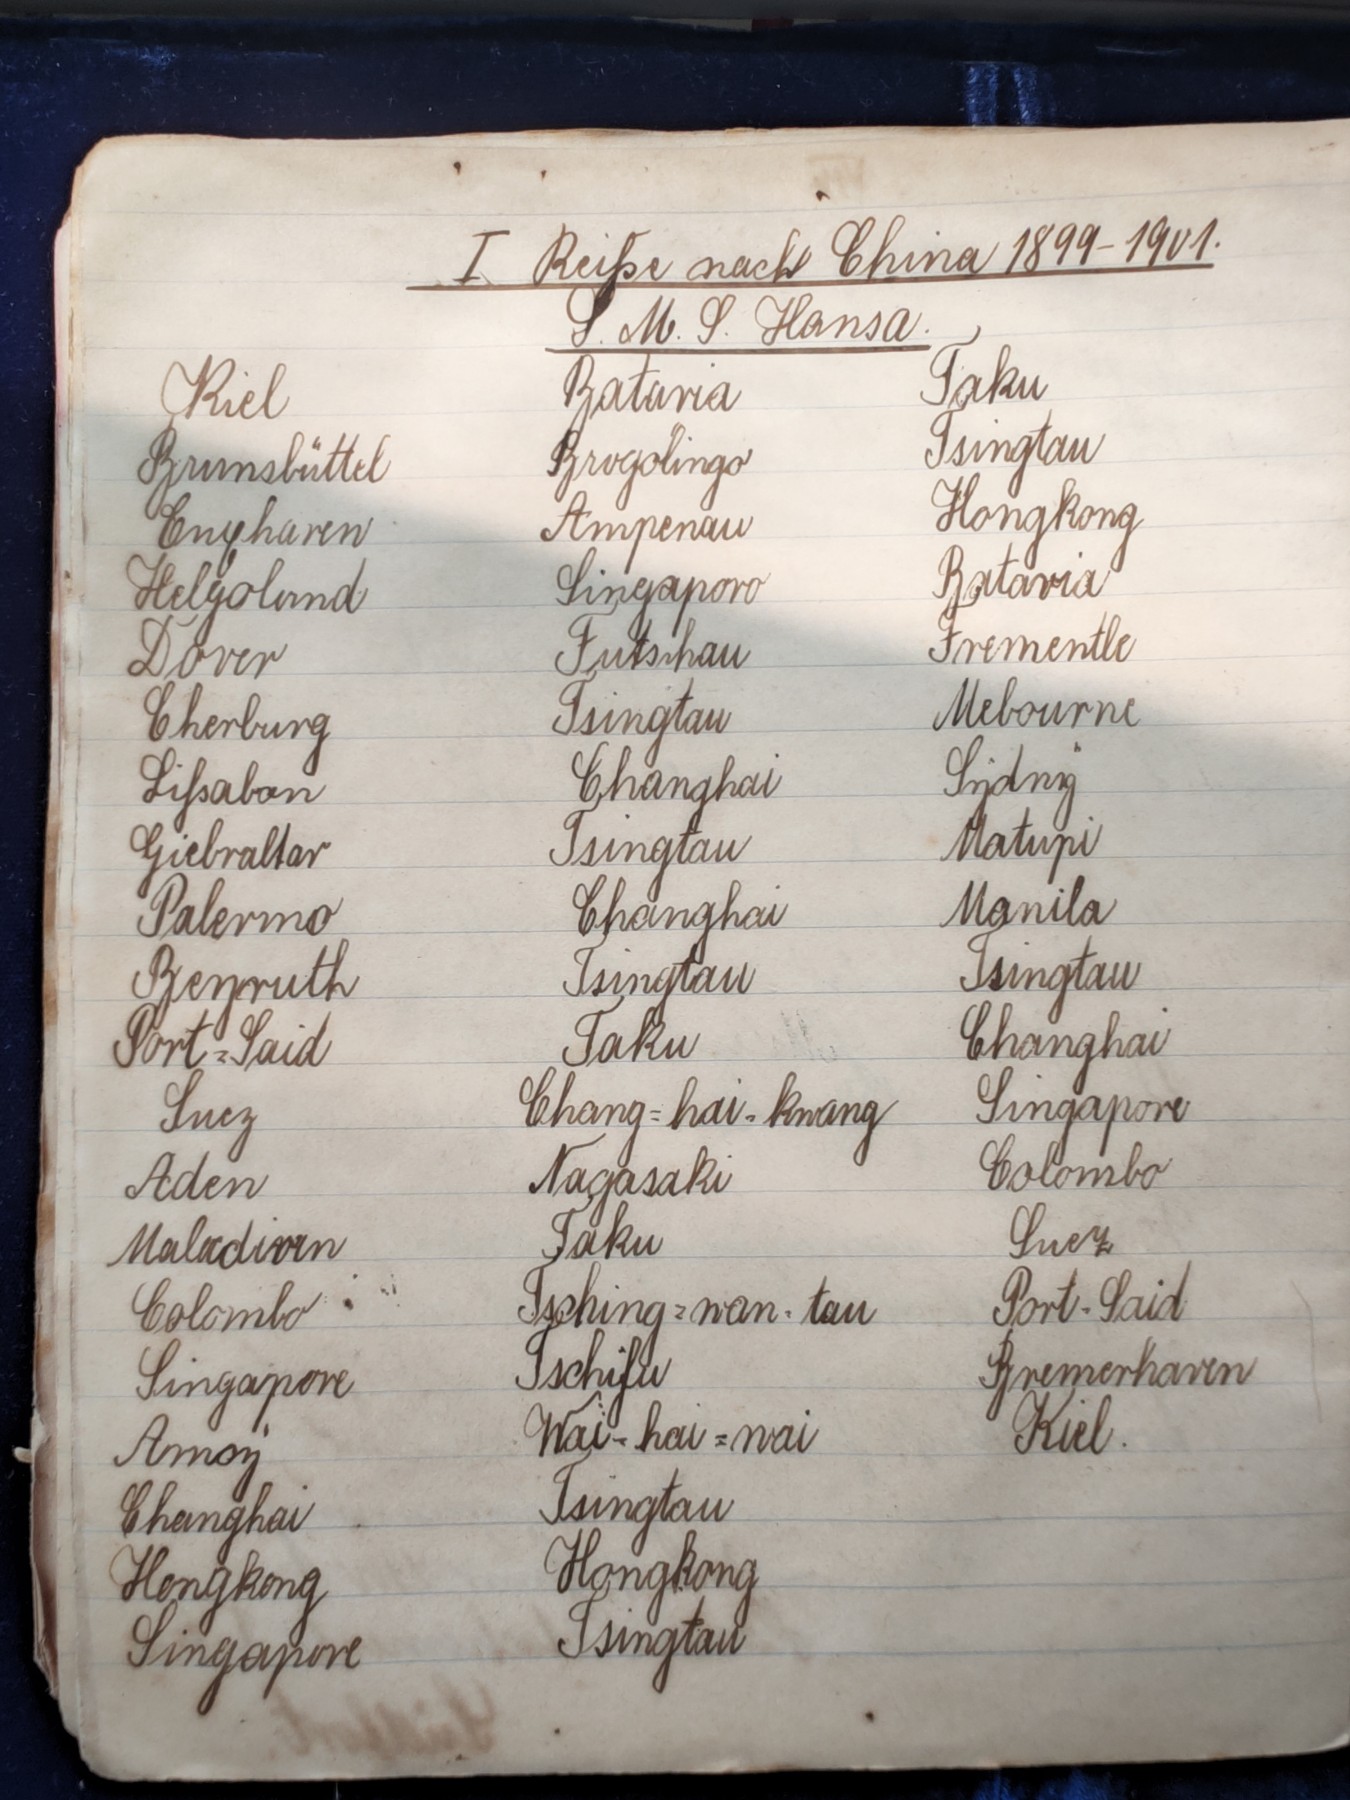 I Reiße nach China 1899-1901.
S. M. S. Hansa.
Kiel
Brunsbüttel
Cuxhaven
Helgoland
Dover
Cherburg
Lißsabon
Giebraltar
Palermo
Beyruth
Port=Said
Suez
Aden
Malediven
Colombo
Singapore
Amoy
Changhai
Hongkong
Singapore
Batavia
Brogolingo
Ampenau
Singaporo
Futschau
Tsingtau
Changhai
Tsingtau
Changhai
Tsingtau
Taku
Chang=hai-kwang
Nagasaki
Taku
Tsching=wan-tau
Tschifu
Wai-hai=wai
Tsingtau
Hongkong
Tsingtau
Taku
Tsingtau
Hongkong
Batavia
Frementle
Mebourne
Sydny
Matupi
Manila
Tsingtau
Changhai
Singapore
Colombo
Suez
Port-Said
Bremerhaven
Kiel.